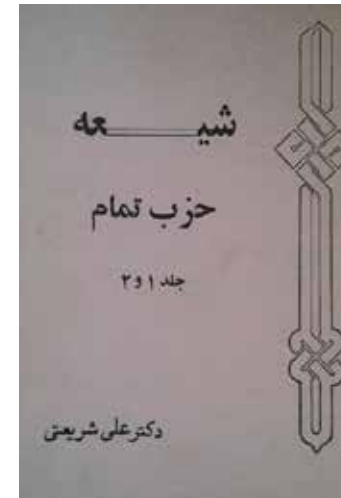 شیعه
حزب تمام
جلد ۱ و ۲
دکتر علی شریعتی